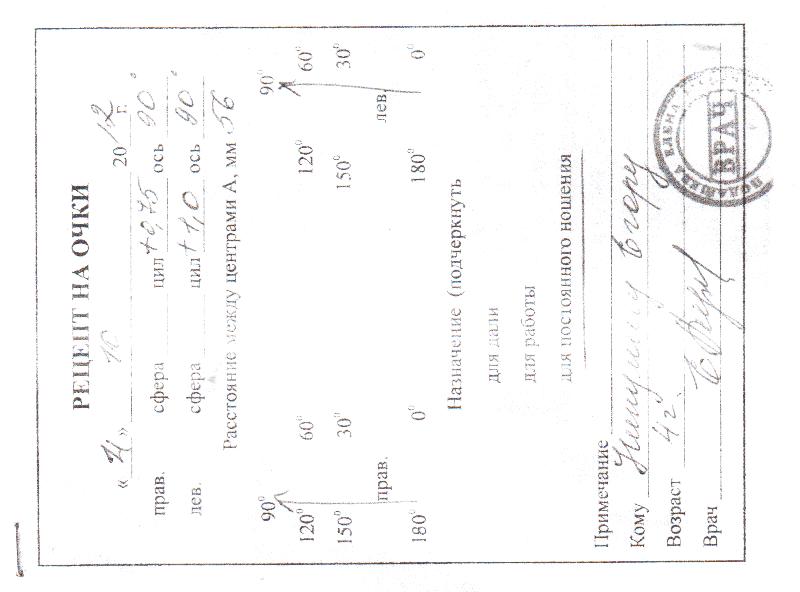 РЕЦЕПТ НА ОЧКИ
« 4 » 10 2012 г.
прав. сфера цил +0,75 ось 90°
лев. сфера цил +1,0 ось 90°
Расстояние между центрами А, мм 56
90° 90°
120° 60° 120° 60°
150° 30° 150° 30°
прав. лев.
180° 0° 180° 0°
Назначение (подчеркнуть
для дали
для работы
для постоянного ношения
Примечание
Кому Егору
Возраст 4 г.
Врач
ЕЛЕНА
ВРАЧ